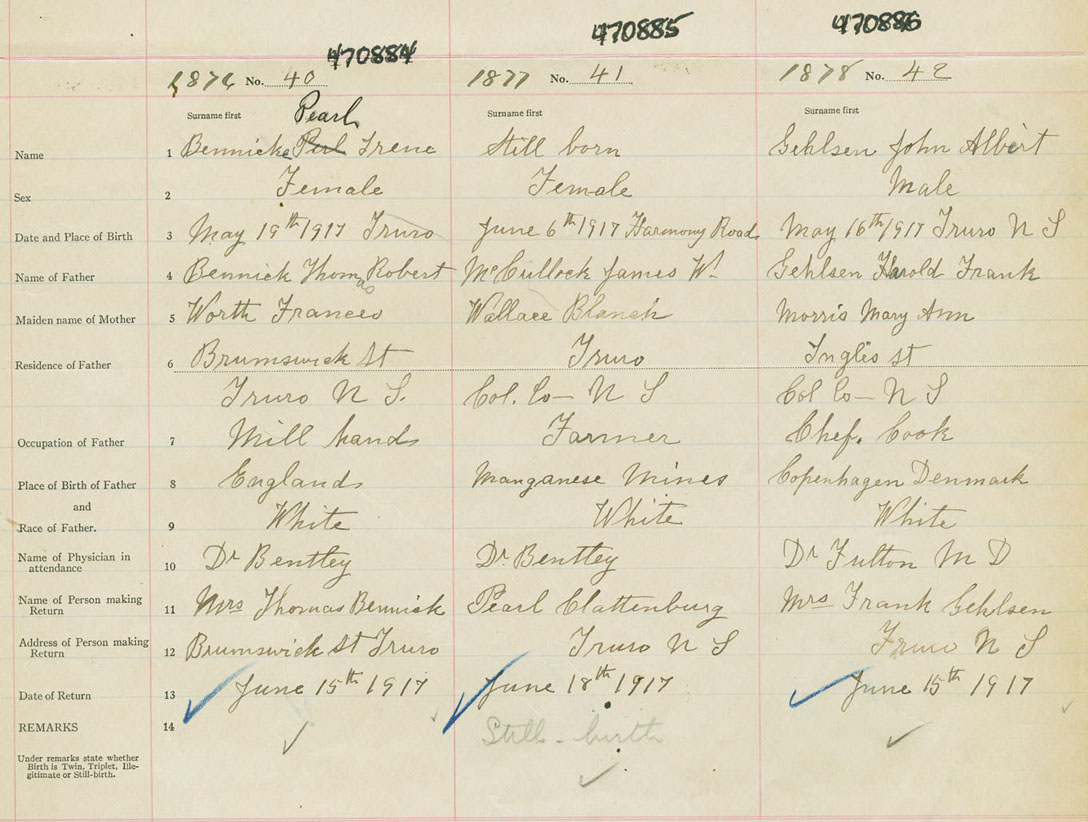 470884 470885 470886
1876 No. 40 1877 No. 41 1878 No. 42
Surname first Pearl Surname first Surname first
Name 1 Bennicke Perl Irene Still born Gehlsen John Albert
Sex 2 Female Female Male
Date and Place of Birth 3 May 19th 1917 Truro June 6th 1917 Harmony Road May 16th 1917 Truro N S
Name of Father 4 Bennick Thomas Robert McCullock James W. Gehlsen Harold Frank
Maiden name of Mother 5 Worth Frances Wallace Blanch Morris Mary Ann
Residence of Father 6 Brumswick St Truro Inglis st
Truro N S. Col. Co— N S Col Co— N S
Occupation of Father 7 Mill hand Farmer Chef. Cook
Place of Birth of Father 8 England Manganese Mines Copenhagen Denmark
and
Race of Father. 9 White White White
Name of Physician in
attendance 10 Dr Bentley Dr Bentley Dr Fulton M D
Name of Person making
Return 11 Mrs Thomas Bennick Pearl Clattenburg Mrs Frank Gehlsen
Address of Person making
Return 12 Brumswick St Truro Truro N S Truro N S
Date of Return 13 June 15th 1917 June 18th 1917 June 15th 1917
REMARKS 14 Still-birth
Under remarks state whether
Birth is Twin, Triplet, Ille-
gitimate or Still-birth.